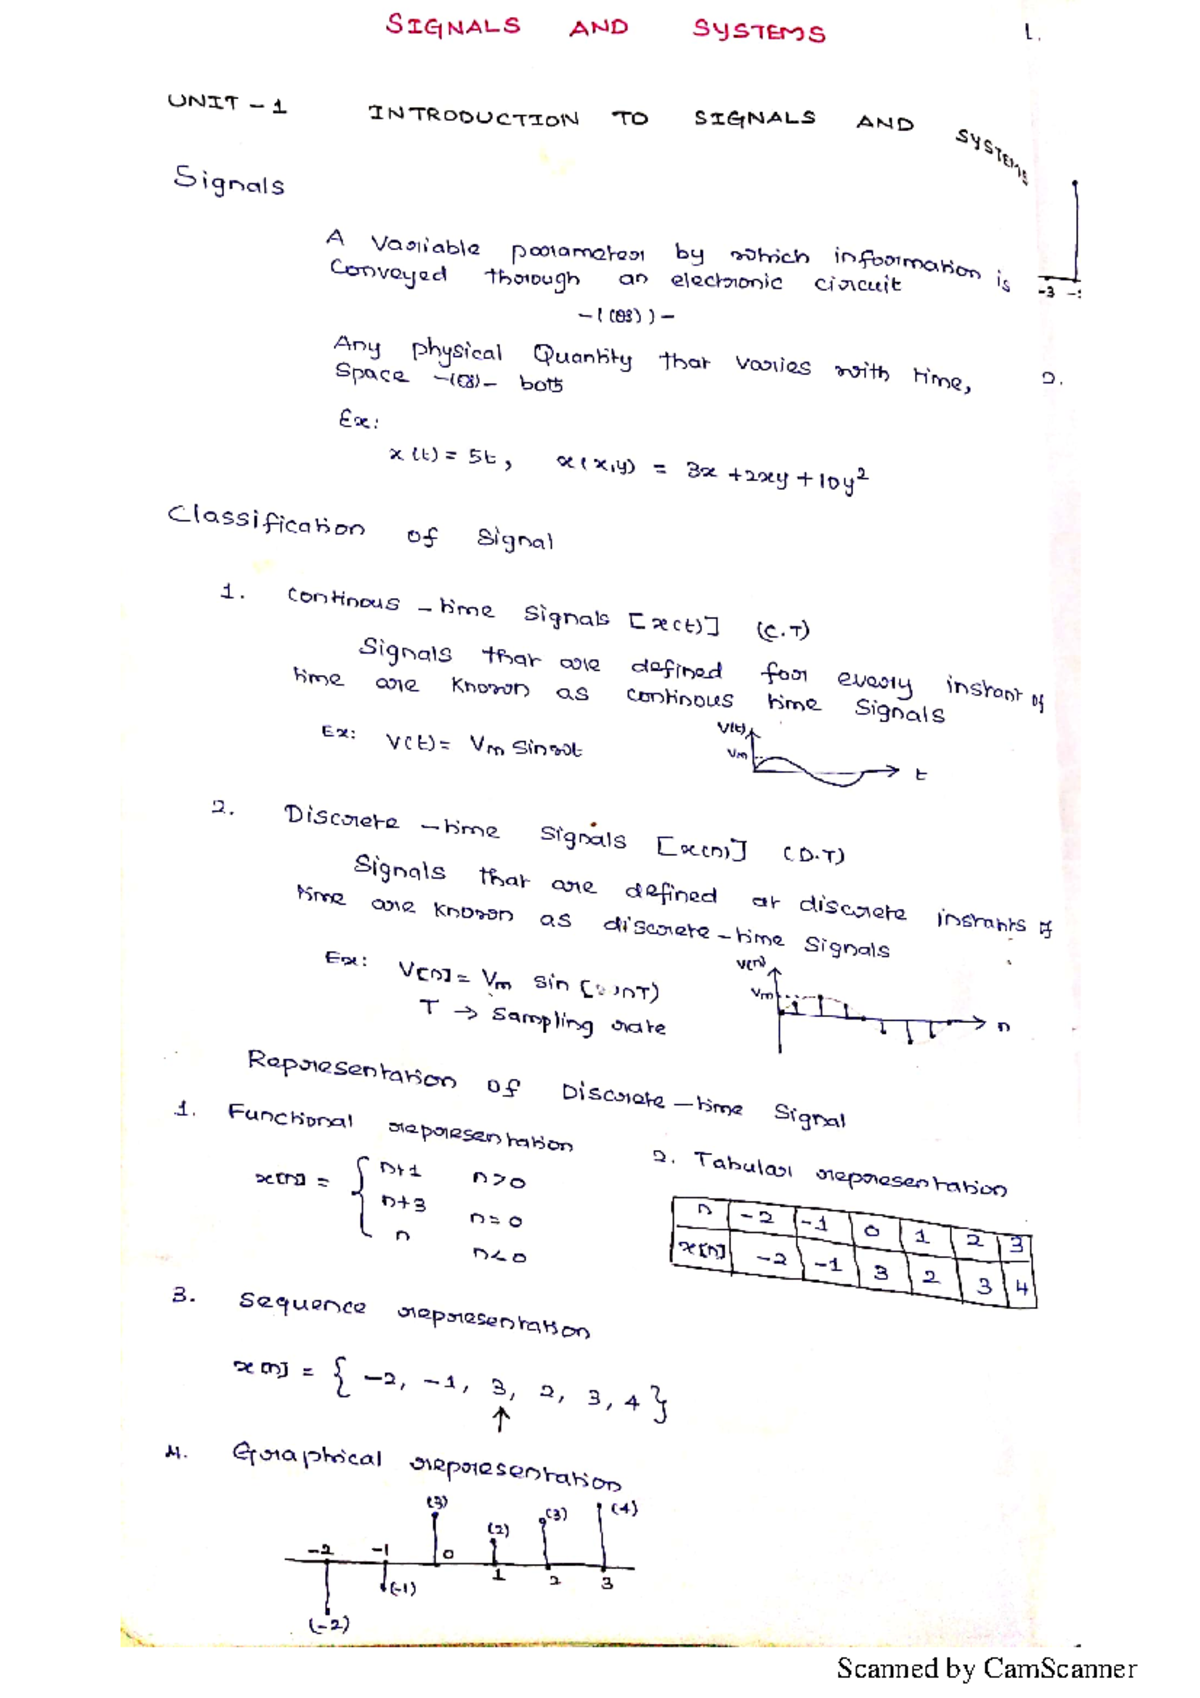 SIGNALS AND SYSTEMS
1.
UNIT - 1 INTRODUCTION TO SIGNALS AND SYSTEMS
Signals
A Variable parameter by which information is
Conveyed through an electronic circuit
-((OR))-
Any physical Quantity that varies with time,
Space -(OR)- both
Ex:
x(t) = 5t, x(x,y) = 3x + 2xy + 10y²
-3
2.
Classification of Signal
1. Continous - time Signals [x(t)] (C.T)
Signals that are defined for every instant of
time are known as continous time Signals
Ex: V(t) = Vm sinωt
V(t)
Vm
t
2. Discrete - time Signals [x(n)] (D.T)
Signals that are defined at discrete instants of
time are known as discrete - time Signals
Ex: V[n] = Vm sin (ωnT)
T → Sampling rate
V(n)
Vm
n
Representation of Discrete - time Signal
1. Functional representation
x[n] = { n+1 n>0
n+3 n=0
n n<0
2. Tabular representation
n -2 -1 0 1 2 3
x[n] -2 -1 3 2 3 4
3. Sequence representation
x[n] = { -2, -1, 3, 2, 3, 4 }
↑
4. Graphical representation
(3) (2) (3) (4)
-2 -1 0 1 2 3
(-1)
(-2)
Scanned by CamScanner